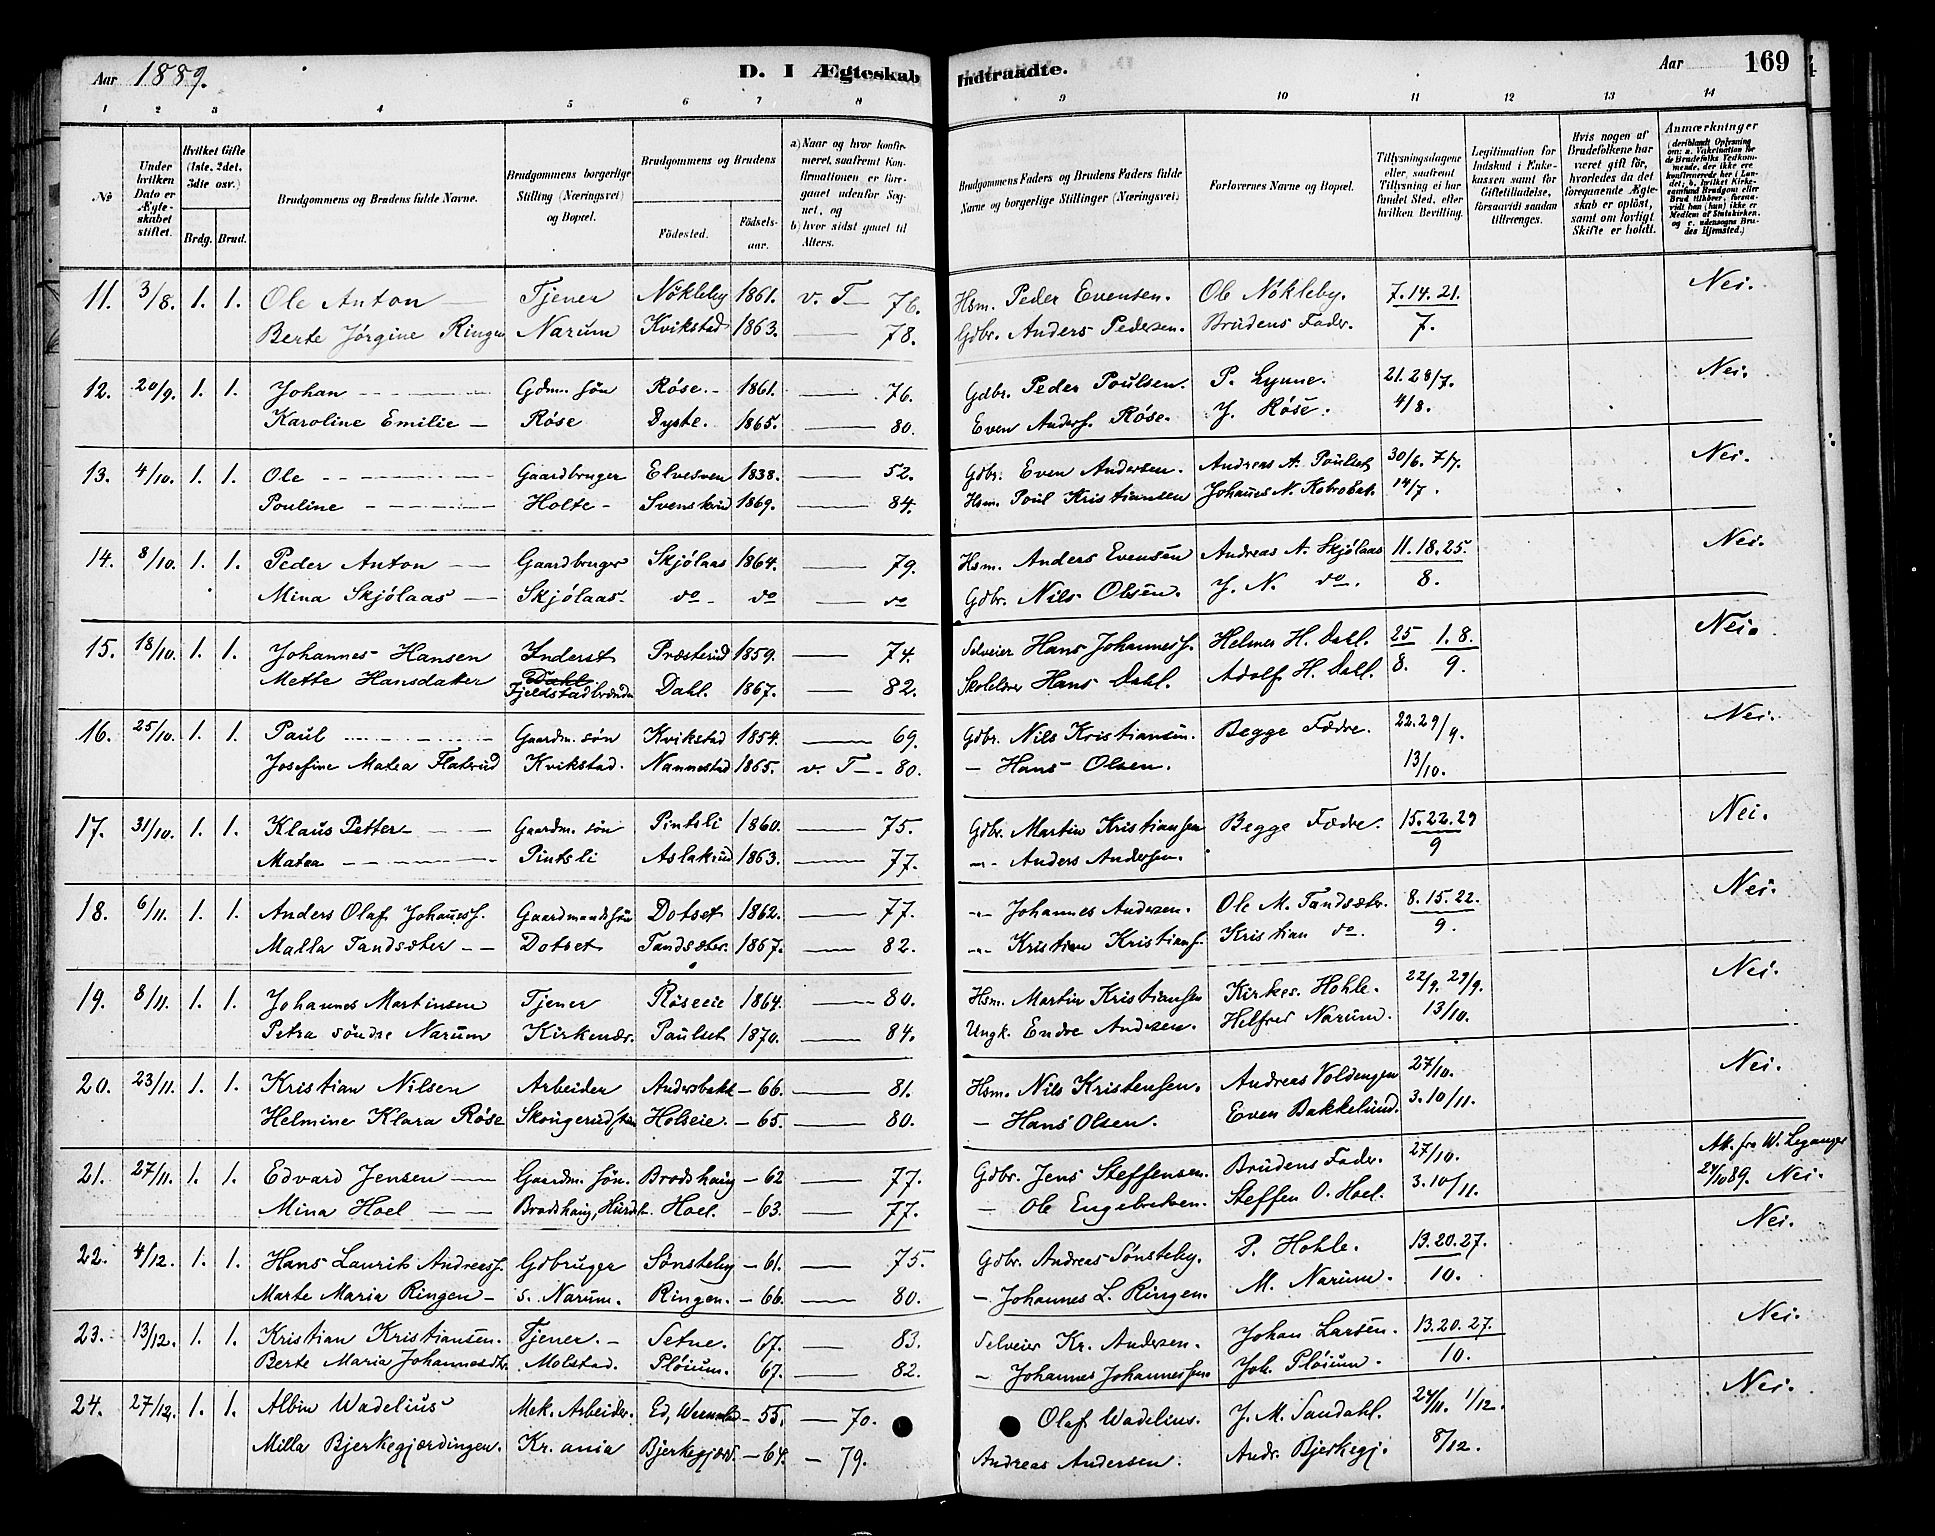 Aar 1889. D. I Ægteskab Indtraadte. Aar 169
1 2 3 4 5 6 7 8 9 10 11 12 13 14
No
Under hvilken Dato er Ægteskabet stiftet.
Hvilket Gifte (1ste, 2det, 3die osv.)
Brdg. Brud.
Brudgommens og Brudens fulde Navne.
Brudgommens borgerlige Stilling (Næringsvei) og Bopæl.
Brudgommens og Brudens
Födested. Födsels-aar.
a) Naar og hvor konfirmeret, saafremt Konfirmationen er foregaaet udenfor Sognet, og
b) hvor sidst gaaet til Alters.
Brudgommens Faders og Brudens Faders fulde Navne og borgerlige Stillinger (Næringsvei)
Forlovernes Navne og Bopæl.
Tillysningsdagene eller, saafremt Tillysning ei har fundet Sted, efter hvilken Bevilling.
Legitimation for Indskud i Enkekassen samt for Giftetilladelse, forsaavidt saadan tiltrænges.
Hvis nogen af Brudefolkene har været gift för, hvorledes da det foregaaende Ægteskab er oplöst, samt om lovligt Skifte er holdt.
Anmærkninger
(deriblandt Oplysning om: a. Vakcination for de Brudefolks Vedkommende, der ikke ere konfirmerede her i Landet; b. hvilket Kirkesamfund Brudgom eller Brud tilhörer, forsaavidt han (hun) ikke er Medlem af Statskirken, og c. udensogns Brudes Hjemsted.)
11. 3/8. 1. 1. Ole Anton — Tjener Nökleby 1861. v. T — 76. Hsm. Peder Evensen. Ole Nökleby. 7. 14. 21. Nei.
Berte Jörgine Ringen Narum Kvikstad 1863. — 78. Gdbr. Anders Pedersen. Brudens Fader. 7.
12. 20/9. 1. 1. Johan — Gdm. sön Röse. 1861. — 76. Gdbr. Peder Poulsen. P. Lynne. 21. 28/7. Nei.
Karoline Emilie — Röse Dyste. 1865. — 80. Even Anders. Röse. J. Röse. 4/8.
13. 4/10. 1. 1. Ole — Gaardbruger Elvesven 1838. — 52. Gdbr. Even Andersen. Andreas A. Poulset 30/6. 7/7. Nei.
Pouline — Holte — 1869. — 84. Hsm. Poul Kristiansen Johañes N. 14/7.
14. 8/10. 1. 1. Peder Anton — Gaardbruger Skjölaas 1864. — 79. Hsm. Anders Evensen Andreas A. Skjölaas 11. 18. 25. Nei.
Mina Skjölaas — Skjölaas do do — do Gdbr. Nils Olsen. J. N. do. 8.
15. 18/10. 1. 1. Johannes Hansen Inderst Præsterud 1859. — 74. Selveier Hans Johanness. Helmer H. Dahl. 25 1. 8. Nei.
Mette Hansdatter Dahl. Fjeldstadbrænden Dahl. 1867. — 82. Skolelærer Hans Dahl. Adolf H. Dahl. 8. 9.
16. 25/10. 1. 1. Paul — Gaardm. sön Kvikstad 1854. — 69. Gdbr. Nils Kristiansen. Begge Fædre. 22. 29/9. Nei.
Josefine Matea Flaterud Kvikstad. Nannestad 1865. v. T — 80. — Hans Olsen. 13/10.
17. 31/10. 1. 1. Klaus Petter — Gaardm. sön Pintsli 1860. — 75. Gdbr. Martin Kristiansen Begge Fædre. 15. 22. 29 Nei.
Matea — Pintsli Aslakrud 1863. — 77. — Anders Andersen. 9
18. 6/11. 1. 1. Anders Olaf Johañess. Gaardmandssön Dotset 1862. — 77. — Johannes Andersen. Ole M. Tandsæter. 8. 15. 22. Nei.
Malla Tandsæter — Dotset Tandsæter. 1867. — 82. — Kristian Kristians. Kristian do. 9.
19. 8/11. 1. 1. Johannes Martinsen Tjener Röseeie 1864. — 80. Hsm. Martin Kristiansen Kirkes. Hohle. 22/9. 29/9. Nei.
Petra söndre Narum Kirkenær. Paulset 1870. — 84. Ungk. Endre Andersen. Helfred Narum. 13/10.
20. 23/11. 1. 1. Kristian Nilsen Arbeider Andersbakk — 66. — 81. Hsm. Nils Kristensen. Andreas Voldengen 27/10. Nei.
Helmine Klara Röse Holseie. — 65. — 80. — Hans Olsen. Even Bakkelund. 3. 10/11.
21. 27/11. 1. 1. Edvard Jensen — Gaardm. sön. Brodshaug — 62 — 77. Gdbr. Jens Steffensen. Brudens Fader. 27/10. At. fra W. Leganger
Mina Hoel — Brodshaug, Hurdal Hoel. — 63. — 77. — Ole Engebretsen. Steffen O. Hoel. 3. 10/11. 24/10 89. Nei.
22. 4/12. 1. 1. Hans Laurits Andreass. Gdbruger Sönsteby — 61. — 75. Gdbr. Andreas Sönsteby. P. Hohle. 13. 20. 27. Nei.
Marte Maria Ringen — s. Narum. Ringen. — 66. — 80. — Johannes L. Ringen. M. Narum. 10.
23. 13/12. 1. 1. Kristian Kristiansen. Tjener. — Setne. 67. — 83. Selveier Kr. Andersen. Johan Larsen. 13. 20. 27. Nei.
Berte Maria Johannesdtr. Molstad. Plöium. 67. — 82. — Johannes Johannessen Joh. Plöium. 10.
24. 27/12. 1. 1. Albin Wadelius Mek. Arbeider. Ed, — 55. — 70. Olaf Wadelius. J. M. Sandahl. 24/11. 1/12. Nei.
Milla Bjerkegjærdingen. Kr. ania Bjerkegjærd. — 64. — 79. Andreas Andersen. Andr. Bjerkegj. 8/12.